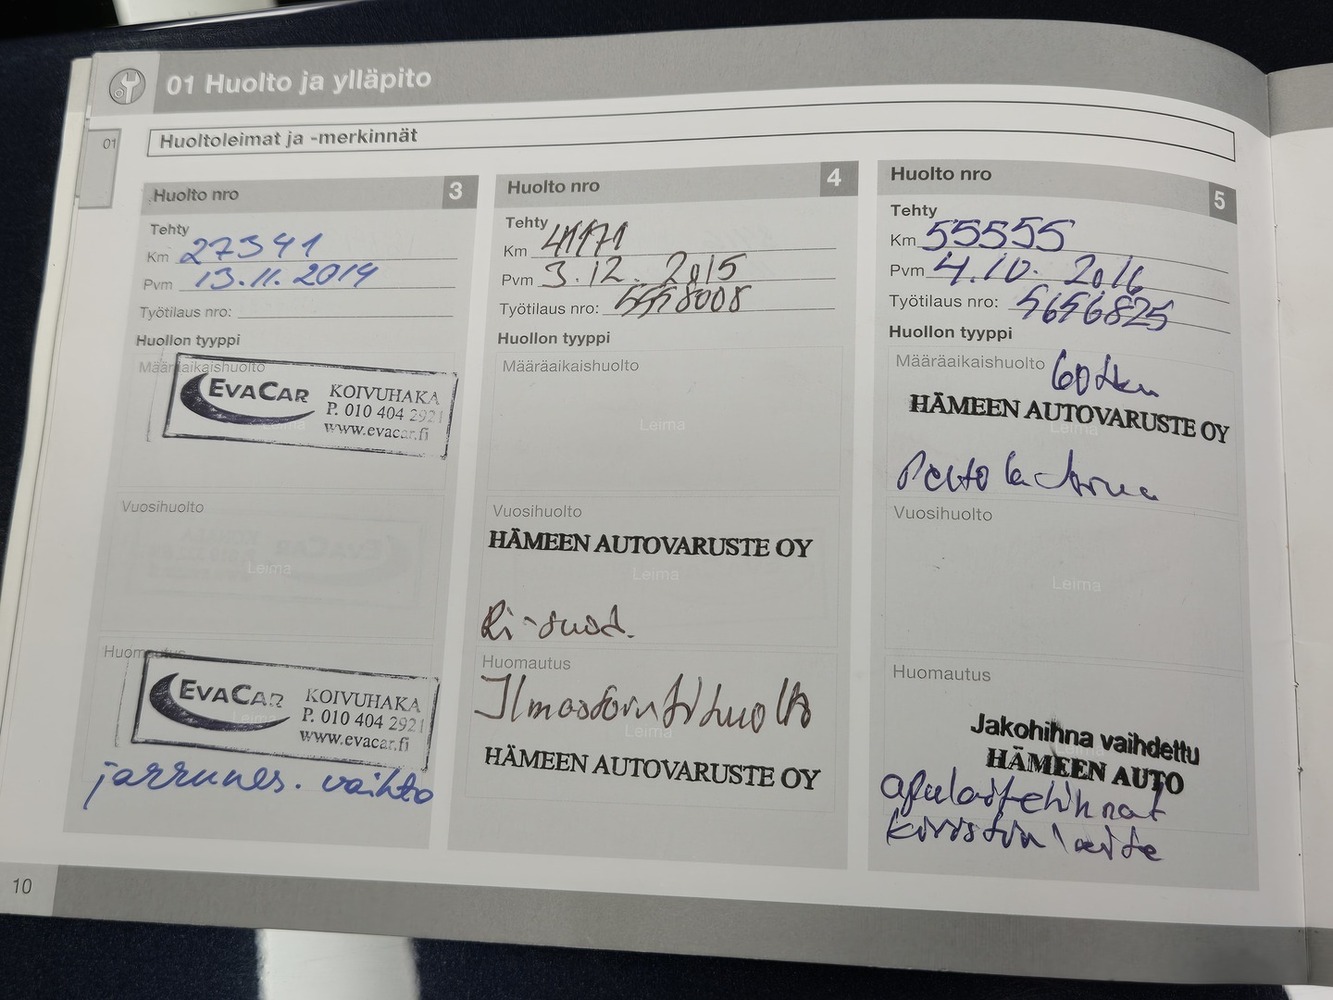 01 Huolto ja ylläpito
01
Huoltoleimat ja -merkinnät
Huolto nro 3
Tehty
Km 27341
Pvm 13.11.2014
Työtilaus nro:
Huollon tyyppi
Määräaikaishuolto
EVACAR KOIVUHAKA
P. 010 404 2921
www.evacar.fi
Leima
Vuosihuolto
Leima
Huomautus
EVACAR KOIVUHAKA
P. 010 404 2921
www.evacar.fi
Leima
jarrunes. vaihto
Huolto nro 4
Tehty
Km 41171
Pvm 3.12.2015
Työtilaus nro: 5558008
Huollon tyyppi
Määräaikaishuolto
Leima
Vuosihuolto
HÄMEEN AUTOVARUSTE OY
Leima
Ri-suod.
Huomautus
Ilmastointihuolto
Leima
HÄMEEN AUTOVARUSTE OY
Huolto nro 5
Tehty
Km 55555
Pvm 4.10.2016
Työtilaus nro: 5656825
Huollon tyyppi
Määräaikaishuolto 60tkm
HÄMEEN AUTOVARUSTE OY
Leima
Vuosihuolto
Leima
Huomautus
Jakohihna vaihdettu
Leima
HÄMEEN AUTO
apulaitehihnat
kiristinlaite
10